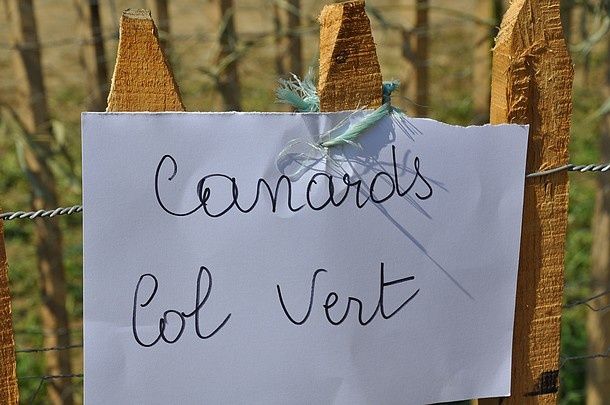 Canards
Col Vert